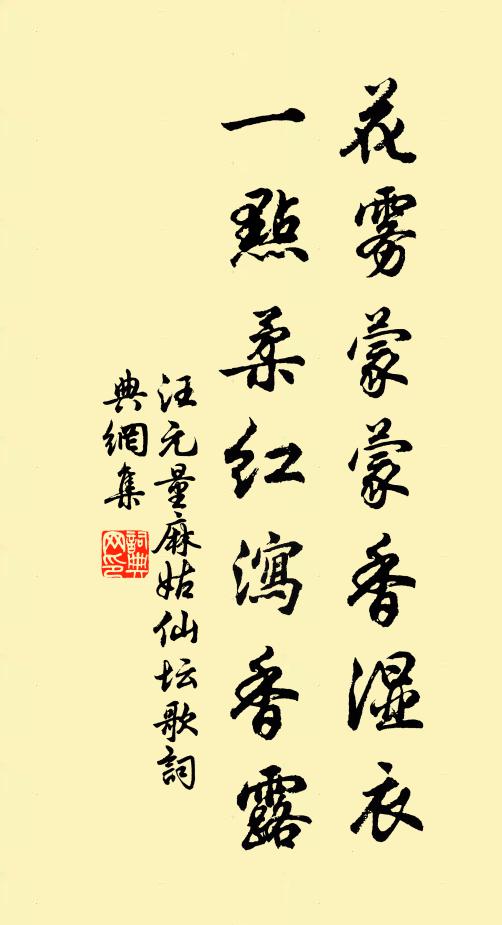 花雾蒙蒙香湿衣
一點柔红瀉香露
汪元量麻姑仙坛歌詞
典網集
詞典网印